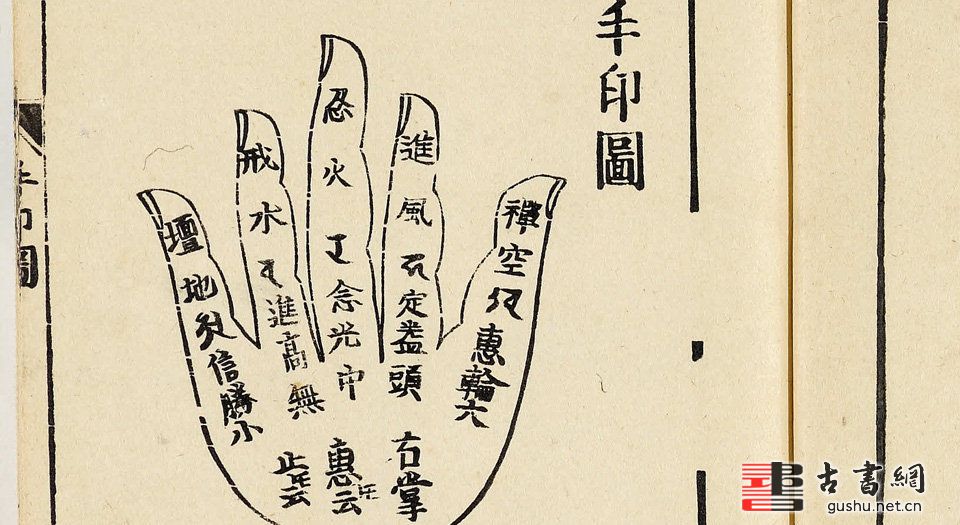 手印圖
禪空惠輪六
進風定蓋頭
忍火念光中
戒水進高無
壇地信勝小
右掌
惠云
手印圖
古書網
gushu.net.cn